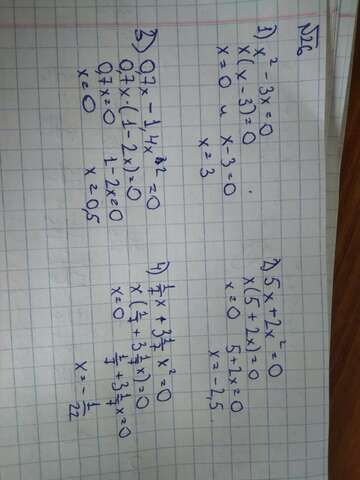 №26
1) x² - 3x = 0
x(x - 3) = 0
x = 0 и x - 3 = 0
x = 3
2) 5x + 2x² = 0
x(5 + 2x) = 0
x = 0 5 + 2x = 0
x = -2,5
3) 0,7x - 1,4x² = 0
0,7x · (1 - 2x) = 0
0,7x = 0 1 - 2x = 0
x = 0 x = 0,5
4) 1/7 x + 3 1/7 x² = 0
x(1/7 + 3 1/7 x) = 0
x = 0 1/7 + 3 1/7 x = 0
x = - 1/22